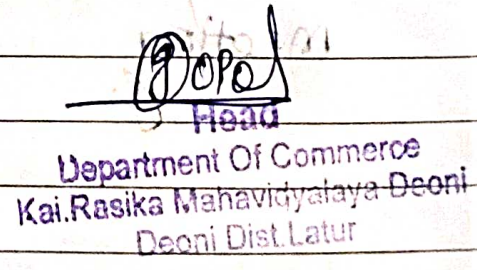 gopal
Head
Department Of Commerce
Kai.Rasika Mahavidyalaya Deoni
Deoni Dist.Latur